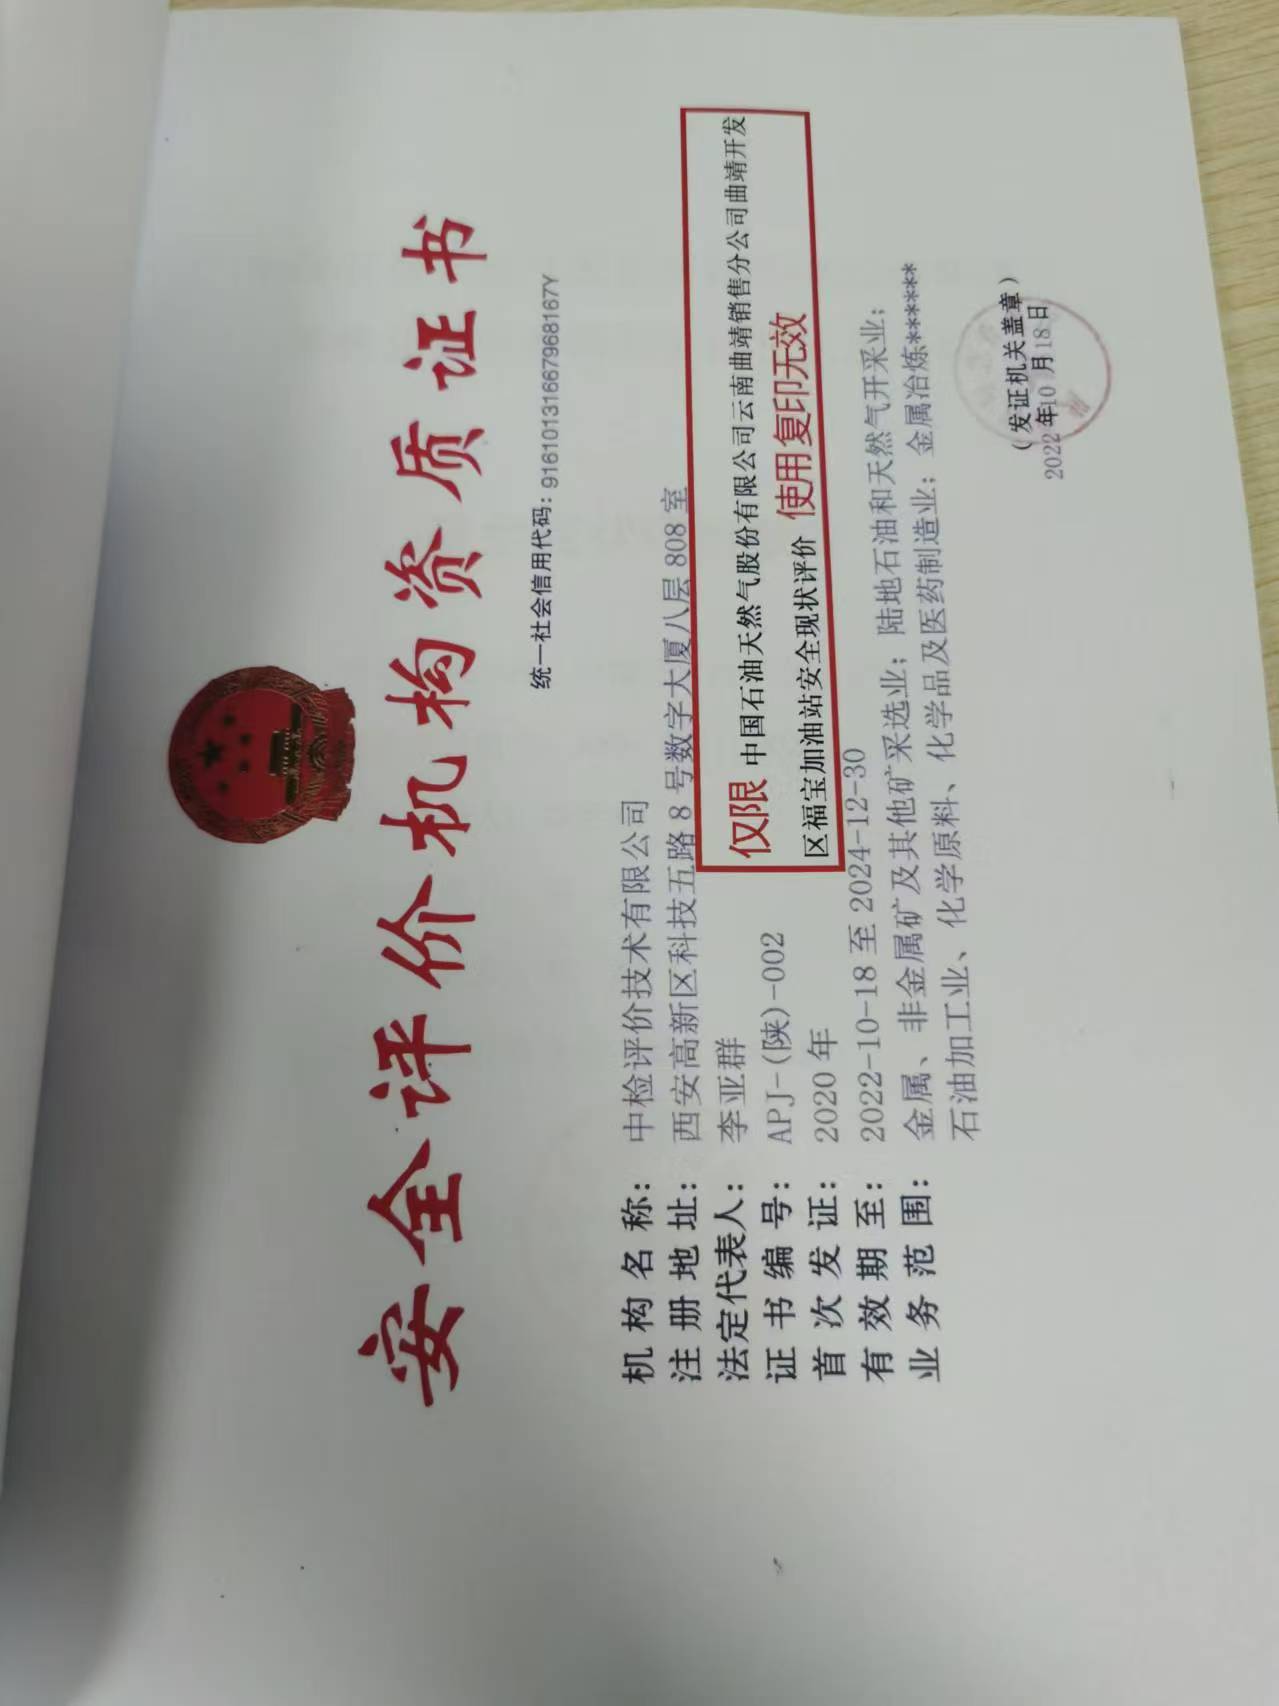 安全评价机构资质证书
统一社会信用代码：91610131667968167Y
机构名称：中检评价技术有限公司
注册地址：西安高新区科技五路8号数字大厦八层808室
法定代表人：李亚群
仅限 中国石油天然气股份有限公司云南曲靖销售分公司曲靖开发
区福宝加油站安全现状评价 使用复印无效
证书编号：APJ-(陕)-002
首次发证：2020年
有效期至：2022-10-18至2024-12-30
业务范围：金属、非金属矿及其他矿采选业；陆地石油和天然气开采业；
石油加工业、化学原料、化学品及医药制造业；金属冶炼******
（发证机关盖章）
2022年10月18日